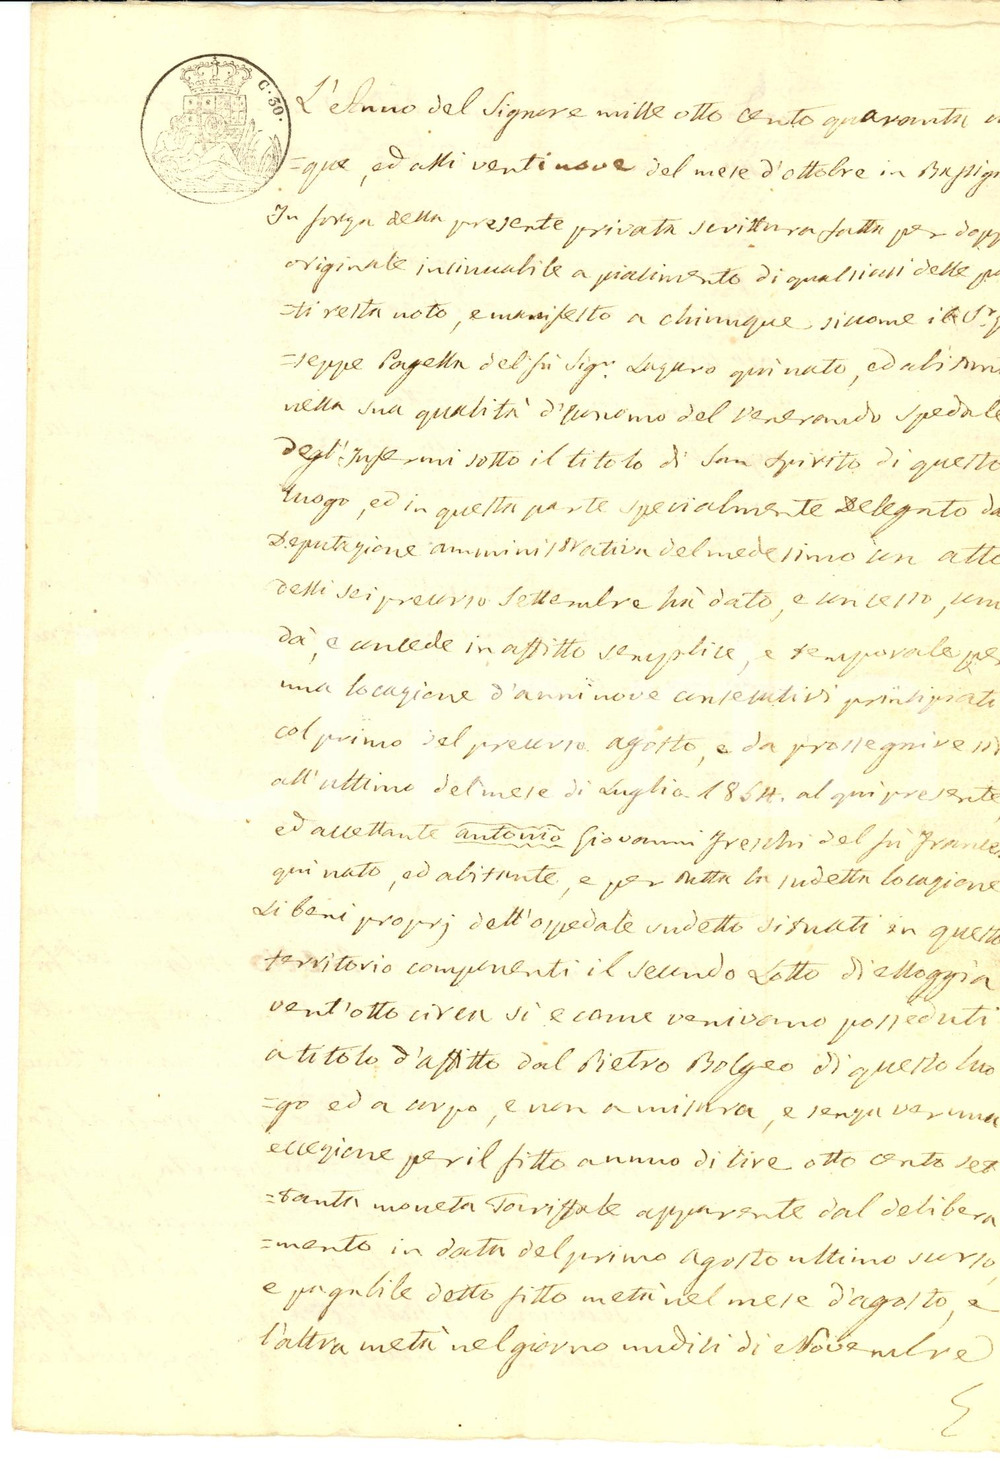 C. 50.
L'Anno del Signore mille otto cento quaranta
=que, ed alli ventinove del mese d'ottobre in Bassig
In forza della presente privata scrittura fatta per dopp
originale insinuabile a pialimento di qualsiasi delle pa
=ti resta noto, e manifesto a chiunque siccome il Sr.
=seppe Pagella del fù Sigr. Lazaro quì nato, ed abitan
nella sua qualità d'Economo del Venerando Spedale
degl'Infermi sotto il titolo di San Spirito di questo
luogo, ed in questa parte specialmente Delegato da
Deputazione amministrativa del medesimo con atto
delli sei precorso Settembre hà dato, e concesso, com
dà, e concede in affitto semplice, e temporale per
una locazione d'anni nove consecutivi principiati
col primo del precorso agosto, e da prosseguire si
all'ultimo del mese di Luglio 1854. al qui presente,
ed accettante antonio Giovanni Freschi del fù France
qui nato, ed abitante, e per tutta la sudetta locazione
Li beni proprj dell'ospedale sudetto situati in questo
territorio componenti il secondo Lotto di Moggia
vent'otto circa sì e come venivano posseduti
a titolo d'affitto dal Pietro Bolgeo di questo luo
=go ed a corpo, e non a misura, e senza veruna
eccezione per il fitto annuo di lire otto cento set
=tanta moneta Tariffale apparente dal delibera
=mento in data del primo Agosto ultimo scorso,
e pagabile detto fitto metà nel mese d'agosto, e
l'altra metà nel giorno undici di Novembre